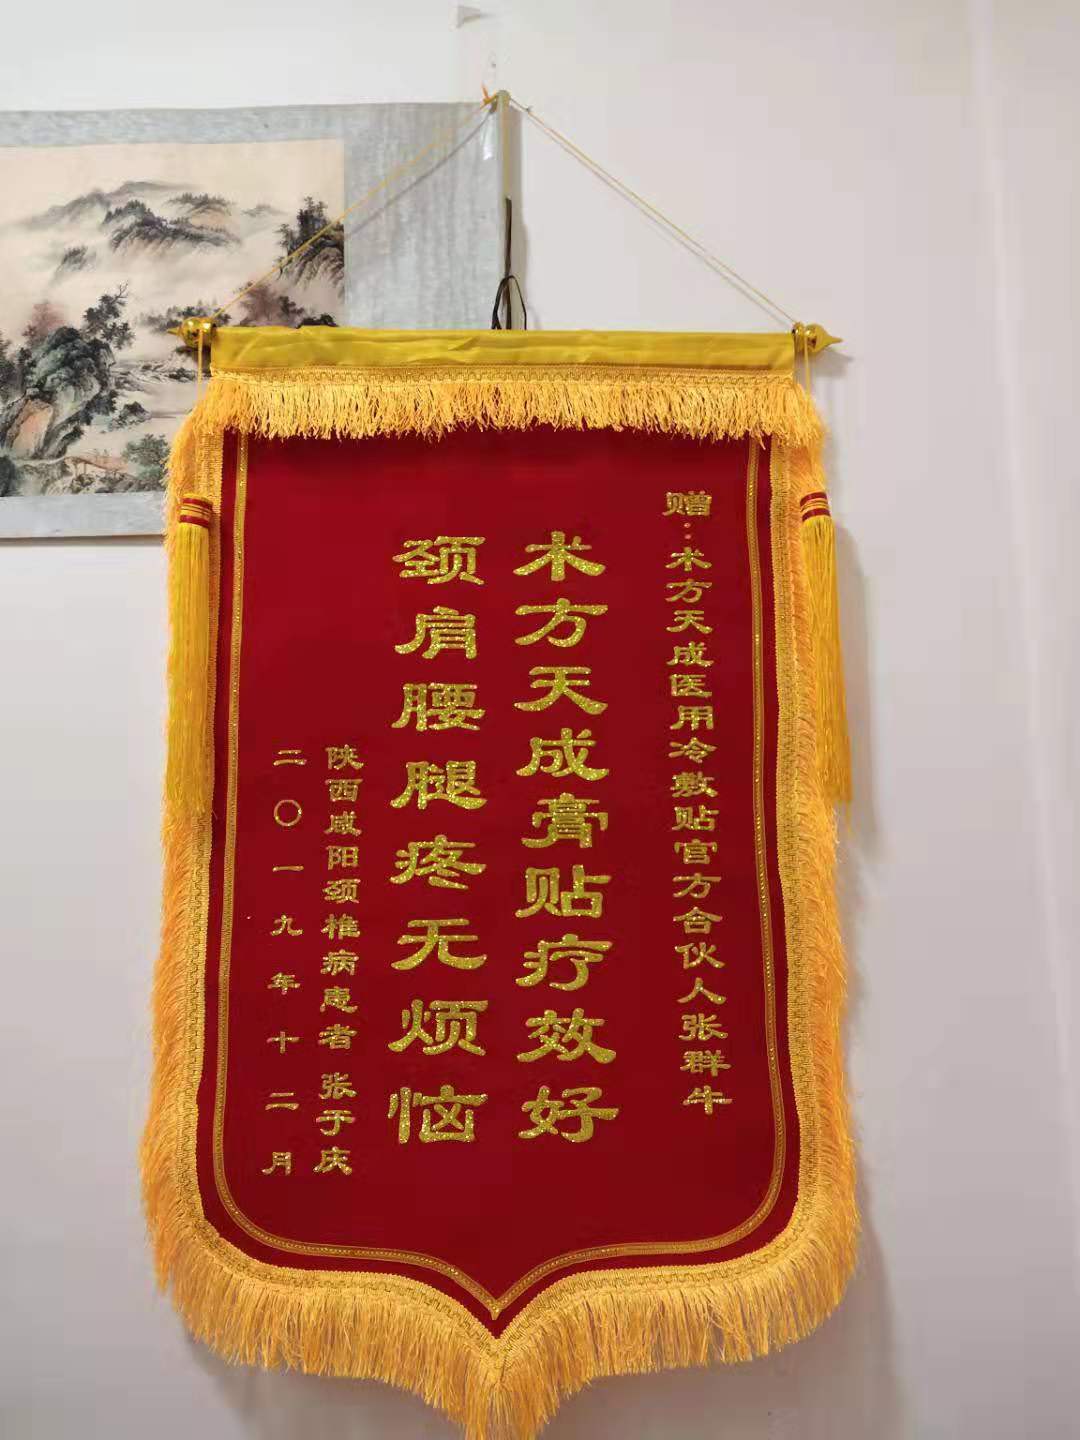 赠:术方天成医用冷敷贴官方合伙人张群牛
术方天成膏贴疗效好
颈肩腰腿疼无烦恼
陕西咸阳颈椎病患者 张于庆
二〇一九年十二月